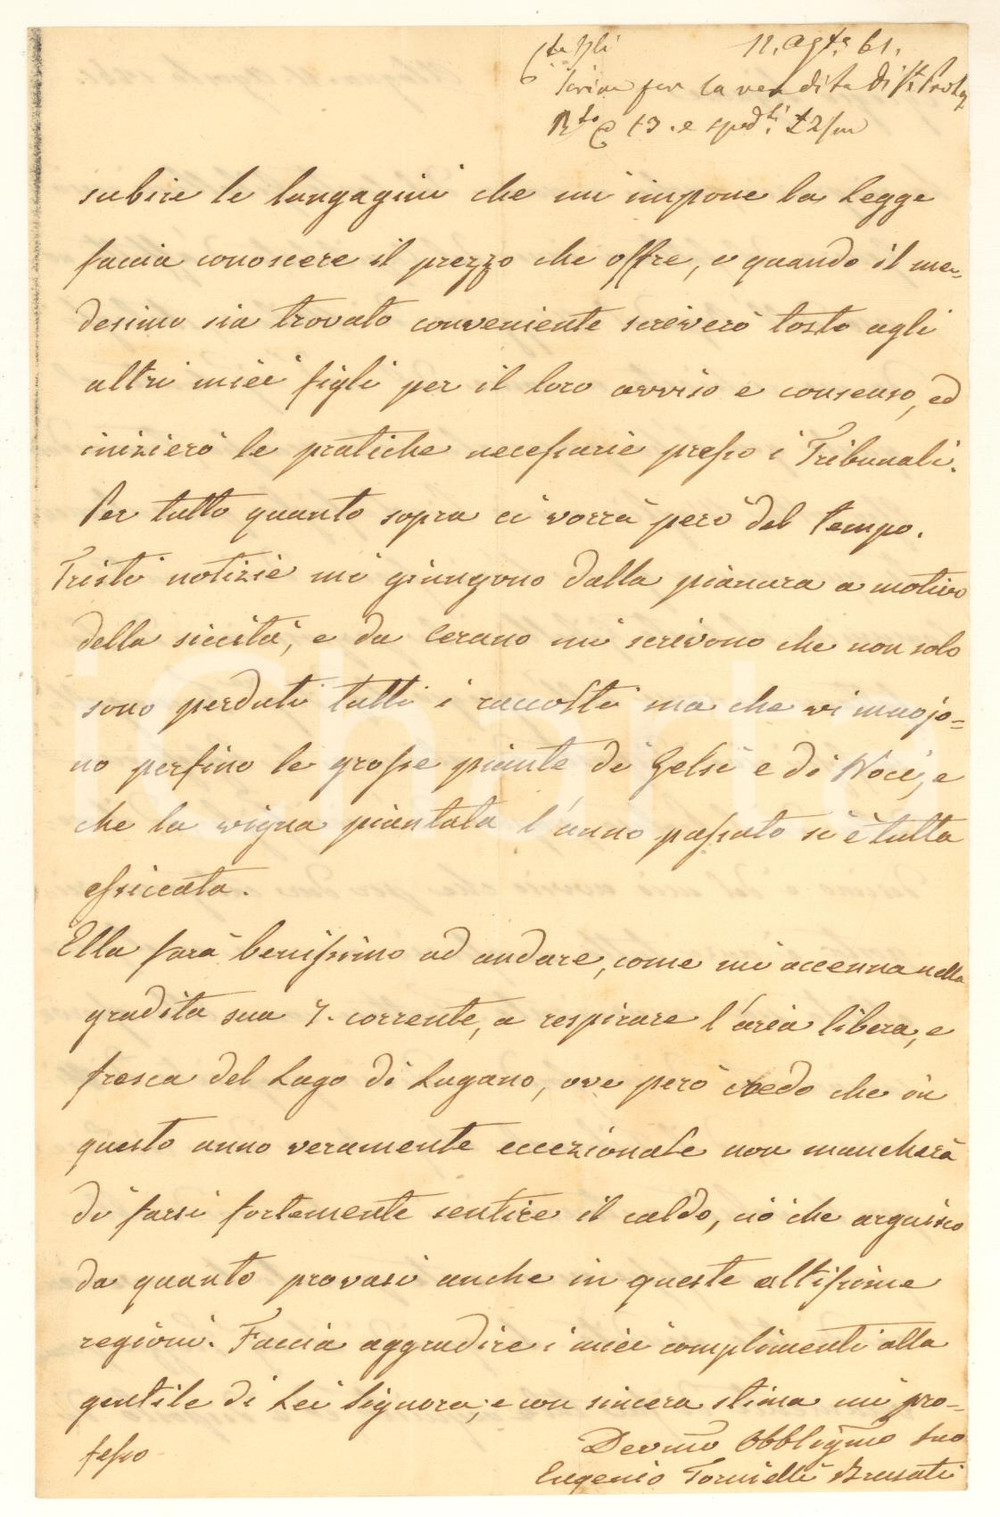 11. Ag.to 61.
per la vendita di
subire le lungagini che mi impone la Legge
faccia conoscere il prezzo che offre, e quando il me-
desimo sia trovato conveniente scriverò tosto agli
altri miei figli per il loro avviso e consenso, ed
inizierò le pratiche necessarie presso i Tribunali.
Per tutto quanto sopra ci vorrà però del tempo.
Triste notizie mi giungono dalla pianura a motivo
della siccità, e da Cerano mi scrivono che non solo
sono perduti tutti i raccolti ma che vi muojo=
no perfino le grosse piante di Gelsi e di Noci, e
che la vigna piantata l'anno passato si è tutta
essiccata.
Ella farà benissimo ad andare, come mi accenna nella
gradita sua 7. corrente, a respirare l'aria libera, e
fresca del Lago di Lugano, ove però credo che in
questo anno veramente eccezionale non mancherà
di farsi fortemente sentire il caldo, ciò che arguisco
da quanto provasi anche in queste altissime
regioni. Faccia aggradire i miei complimenti alla
gentile di Lei Signora, e con sincera stima mi pro-
fesso
Devmo Obbligmo Suo
Eugenio Tornielli Brusati